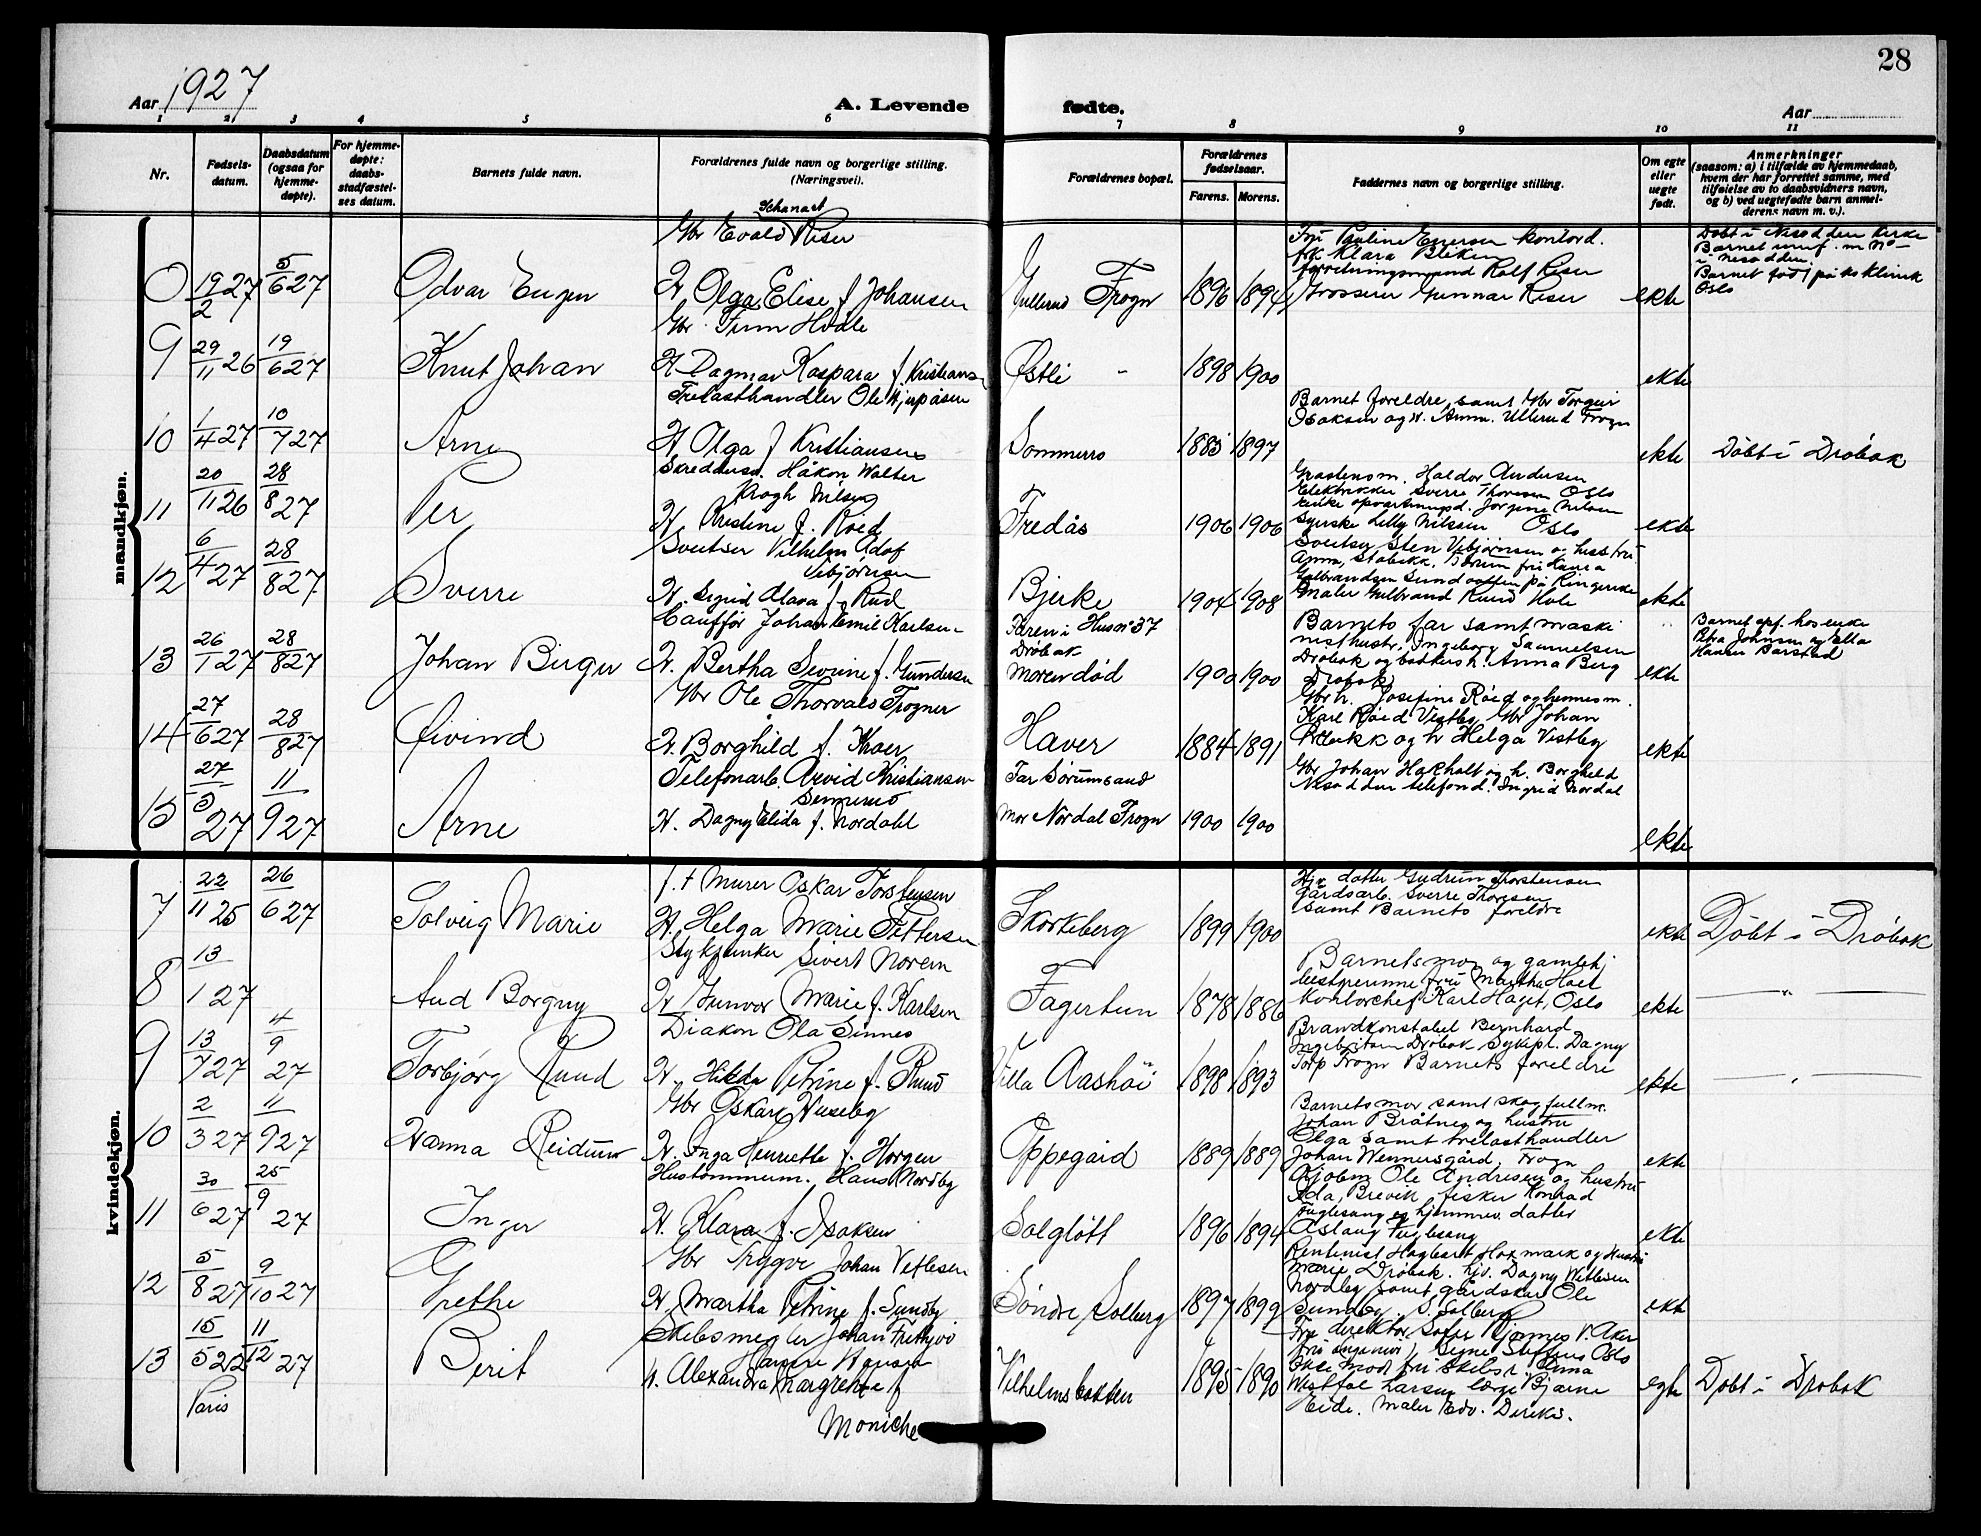 28
Aar 1927
A. Levende
fødte.
Aar
1 2 3 4 5 6 7 8 9 10 11
Nr.
Fødsels-
datum.
Daabsdatum
(ogsaa for
hjemme-
døpte).
For hjemme-
døpte:
daabs-
stadfæstel-
ses datum.
Barnets fulde navn.
Forældrenes fulde navn og borgerlige stilling.
(Næringsvei).
Forældrenes bopæl.
Forældrenes
fødselsaar.
Farens. Morens.
Faddernes navn og borgerlige stilling.
Om egte
eller
uegte
født.
Anmerkninger
(saasom: a) i tilfælde av hjemmedaab,
hvem der har forrettet samme, med
tilføielse av to daabsvidners navn,
og b) ved uegtefødte barn anmel-
derens navn m. v.).
mandkjøn.
Gbr Evald Riser
19/2 27 5/6 27 Odvar Eugen
H Olga Elise f Johansen
Frogn 1896 1894
Fru Pauline Enersen kontord.
frk Klara Bliken
forretningsmand Rolf Riser
Grosserer Gunnar Riser
ekte
Döbt i Nesodden Kirke
i Nesodden.
Oslo
9 29/11 26 19/6 27 Knut Johan
Gbr. Finn Hvale
H Dagmar Kaspara f. Kristians
Østli - 1898 1900 ekte
10 1/4 27 10/7 27 Arne
Trelasthandler Ole
H Olga f Kristiansen
Sommerro 1885 1897
Barnet foreldre, samt Gbr Torgeir
Isaksen og H. Anna. Ullerud Frogn
ekte Döbt i Dröbak
11 20/11 26 28/8 27 Per
Skreddersv. Håkon Walter
Krogh Nilsen
H. Kristine f. Röed
Fredås 1906 1906
Haldor Andersen
Elektrikker Sverre Thoresen Oslo
Enke Jörgine Nilsen
Syerske Lilly Nilssen Oslo
ekte
12 6/4 27 28/8 27 Sverre
Sveitser Vilhelm Adof
Vebjörnsen
H. Sigrid Alava f. Rud
Bjerke 1904 1908
Sveitser Sten Vebjörnsen og hustru
Anna, Stabekk. Bærum fru Laura
Gulbrandsen Sundvolden på Ringerike
Maler Gulbrand Ruud Hole
ekte
13 26/1 27 28/8 27 Johan Birger
Cauffør Johan Emil Karlsen
H. Bertha Sevrine f. Gundersen
Faren i Hus no 37
Dröbak
Moren död 1900 1900
Barnets far samt maski
nisthustr. Ingeborg Samuelsen
Dröbak og bakkers h. Anna Berg
Dröbak
ekte
Barnet opf. hos enke
Petra Johnsen og Ella
Hansen Barstad
14 27/6 27 28/8 27 Øivind
Gbr Ole Thorvals Frogner
H. Borghild f. Thoer
Haver 1884 1891
Gbr h. Josefine Röed og hennes m.
Karl Röed Vestby Gbr Johan
og h Helga Vestby
ekte
15 27/5 27 11/9 27 Arne
Telefonarb. Arvid Kristiansen
H. Dagny Elida f. Nordahl
Far Sörumsand
Mor Nordal Frogn 1900 1900
Gbr Johan Hakholt og h. Borghild
Nesodden telefond. Ingrid Nordal
ekte
kvindekjøn.
7 22/11 25 26/6 27 Solveig Marie
f. + Murer Oskar Torstensen
H. Helga Marie Pettersen
Skorkeberg 1899 1900
Hjv. datter Gudrun Thorstensen
Gårdsarb. Sverre Thoresen
samt Barnets foreldre
ekte Döbt i Dröbak
8 13/1 27 Aud Borgny
Sivert Norem
H Gunvor Marie f. Karlsen
Fagertun 1878 1886
Barnets mor og gamlehj
bestyrerinne fru Martha Hoel
Kontorchef Karl Haget, Oslo
ekte — " —
9 13/7 27 4/9 27 Torbjörg Ruud
Diakon Ola Sinnes
H. Hilda Petrine f. Ruud
Villa Aashöi 1898 1893
Brandkonstabel Bernhard
Ingebritsen Dröbak Sykepl. Dagny
Torp Frogn Barnets foreldre
ekte — " —
10 2/3 27 11/9 27 Hanna Reidun
Gbr Oskar Huseby
H. Inga Henriette f. Horgen
Oppegård 1889 1889
Barnets mor samt skogfullm.
Johan Bråtnes og hustru
Olga samt trelasthandler
Johan Wennersgård, Frogn
ekte
11 30/6 27 25/9 27 Inger
Hustömmerm. Hans Nordby
H. Klara f. Isaksen
Solglött 1896 1894
Kjöbm Ole Andresen og hustru
Ada, Brevik, fisker Konrad
Fuglesang og hjemmev. datter
Aslaug Fuglesang
ekte
12 5/8 27 9/10 27 Grethe
Gbr Trygve Johan Vetlesen
H. Martha Petrine f. Sundby
Söndre Solberg 1897 1899
Rentenist Hagbart Hoxmark og Hustru
Marie Dröbak. hjv. Dagny Wetlesen
Nordby samt gårdskar Ole
Sundby. S. Solberg
ekte
13 15/5 22 11/12 27 Berit
Paris
Skibsmegler Johan Frithjov
Hansen
H. Alexandra Margrethe f
Moniche
Vilhelmsbakken 1895 1890
Fru direktör
fru ingeniör Signe Oslo
fru skibsr. Anna
Westfal Larsen læge Bjarne
Eide. Maler Edv. Diriks.
egte Döbt i Dröbak